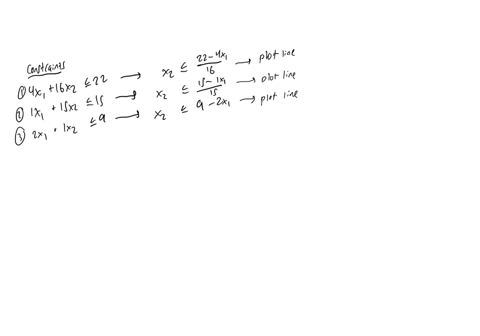 Constraints
① 4x₁ + 16x₂ ≤ 22 → x₂ ≤ (22 - 4x₁)/16 → plot line
② 1x₁ + 15x₂ ≤ 15 → x₂ ≤ (15 - 1x₁)/15 → plot line
③ 2x₁ + 1x₂ ≤ 9 → x₂ ≤ 9 - 2x₁ → plot line